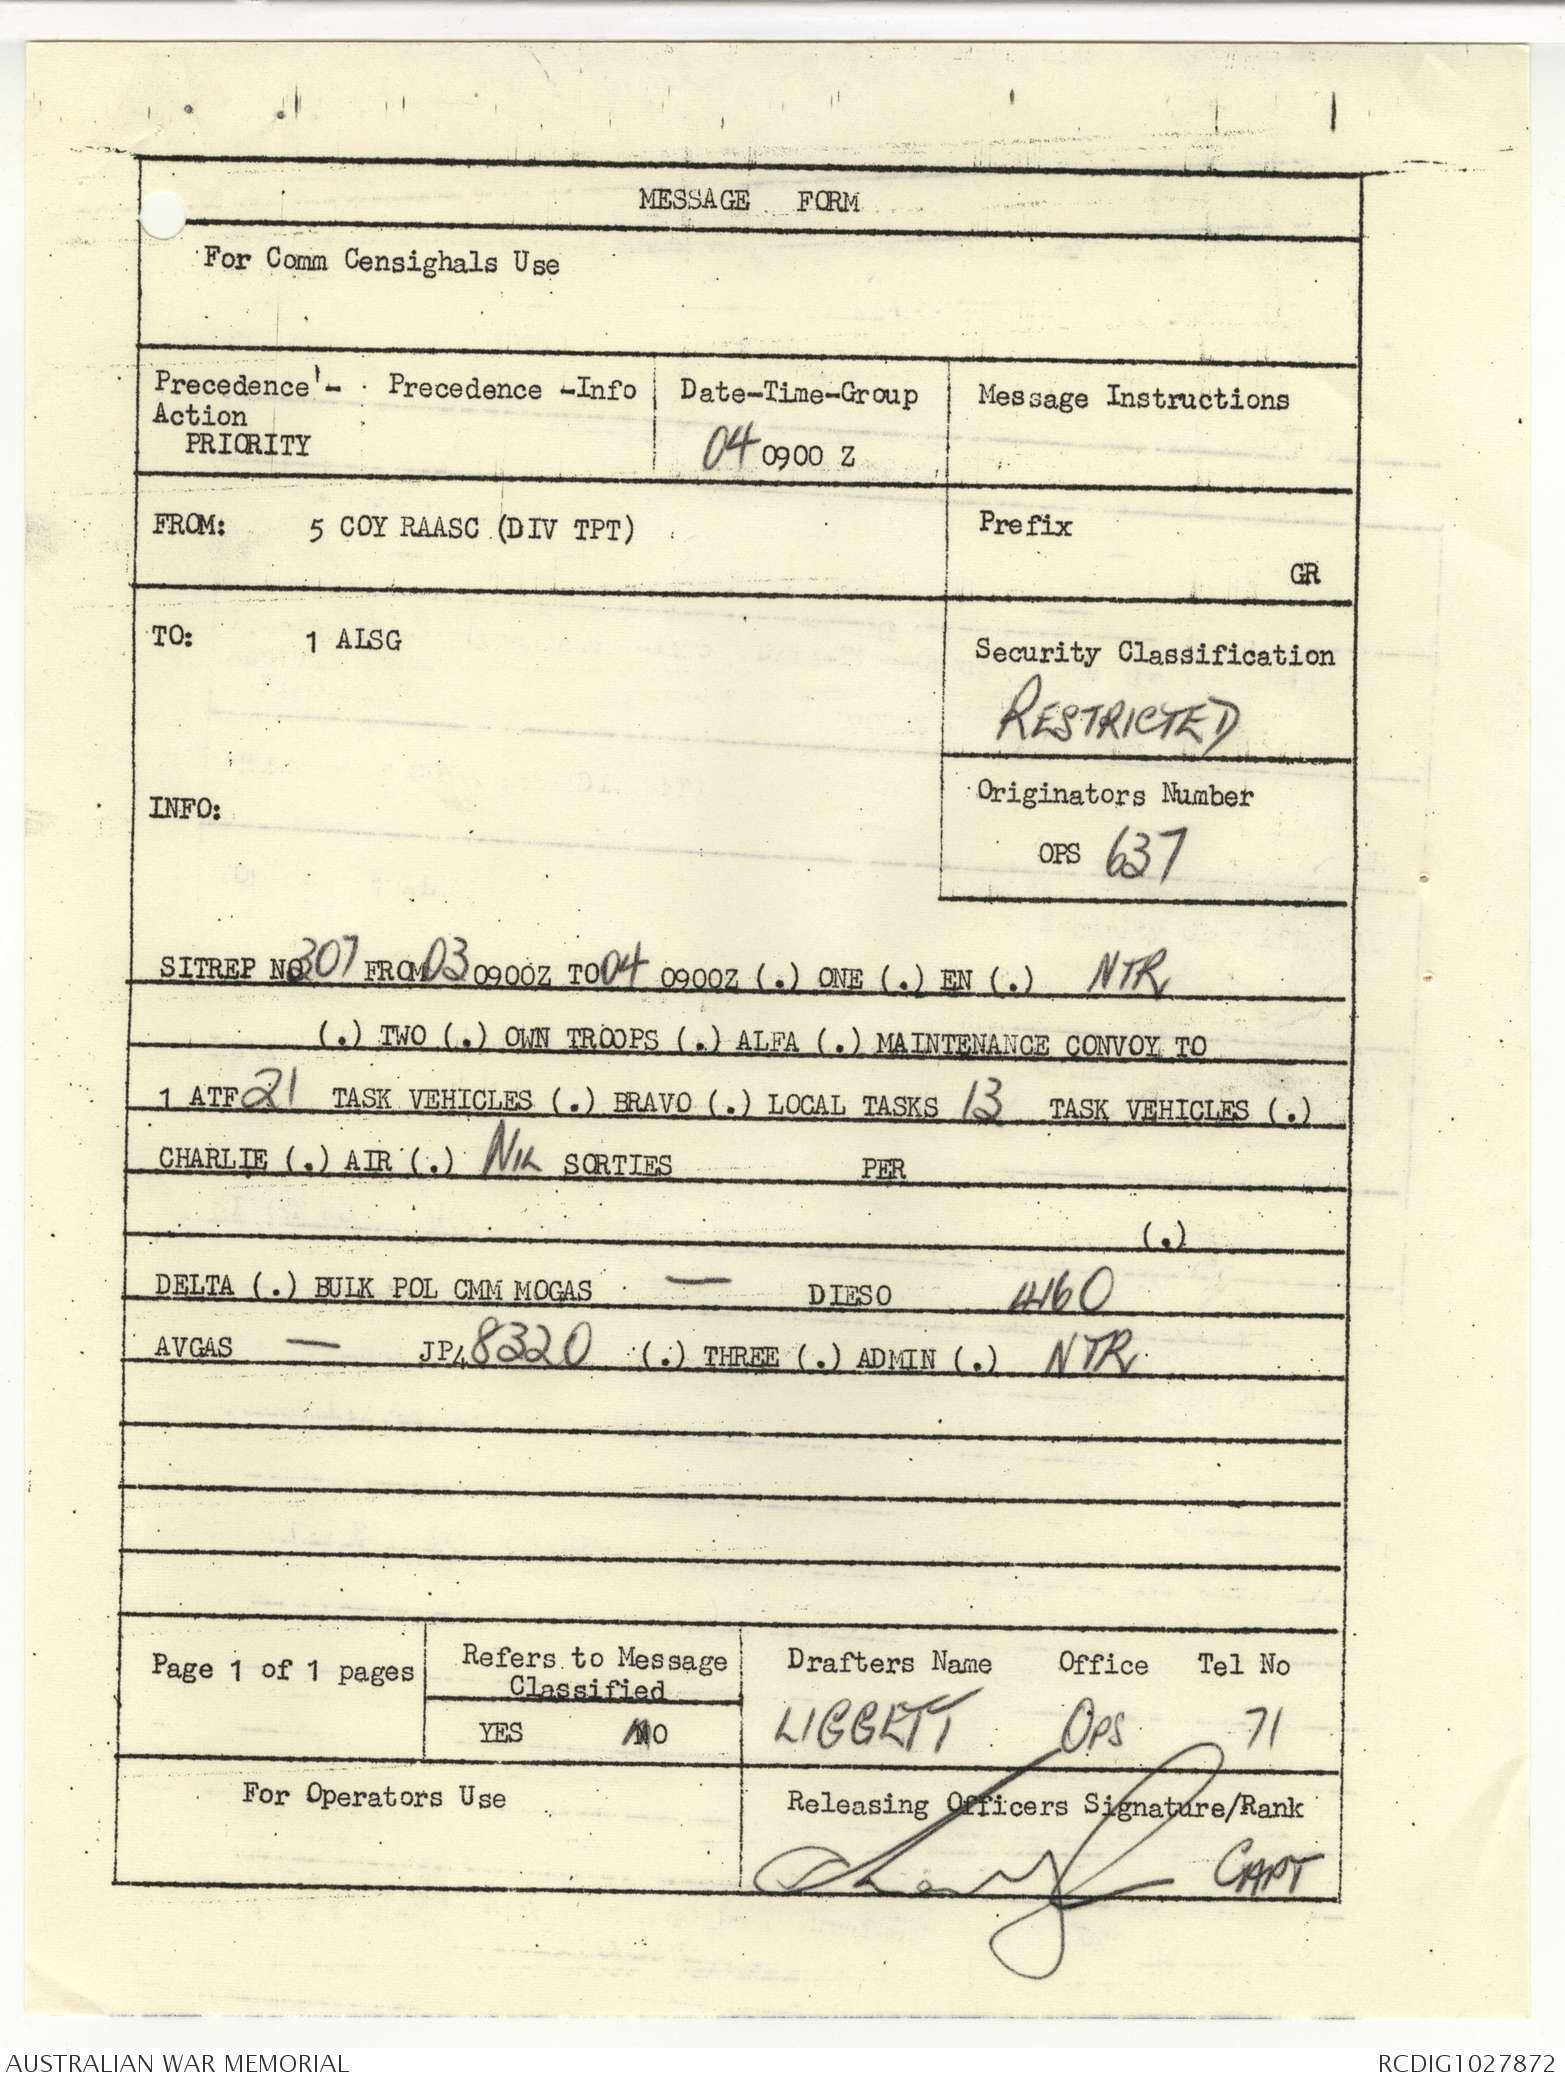 MESSAGE FORM
For Comm Censighals Use
Precedence - Precedence -Info Date-Time-Group Message Instructions
Action
PRIORITY 04 0900 Z
FROM: 5 COY RAASC (DIV TPT) Prefix
GR
TO: 1 ALSG Security Classification
RESTRICTED
INFO: Originators Number
OPS 637
SITREP NO 307 FROM 03 0900Z TO 04 0900Z (.) ONE (.) EN (.) NTR
(.) TWO (.) OWN TROOPS (.) ALFA (.) MAINTENANCE CONVOY TO
1 ATF 21 TASK VEHICLES (.) BRAVO (.) LOCAL TASKS 13 TASK VEHICLES (.)
CHARLIE (.) AIR (.) NIL SORTIES PER
(.)
DELTA (.) BULK POL CMM MOGAS — DIESO 4160
AVGAS — JP4 8320 (.) THREE (.) ADMIN (.) NTR
Page 1 of 1 pages Refers to Message Drafters Name Office Tel No
Classified
YES NO LIGGETT OPS 71
For Operators Use Releasing Officers Signature/Rank
CAPT
AUSTRALIAN WAR MEMORIAL RCDIG1027872